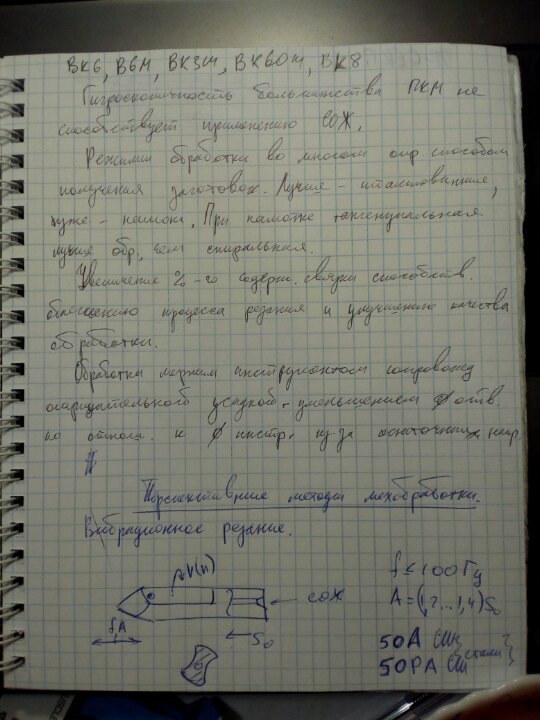 ВК6, В6М, ВК3М, ВК6ОМ, ВК8
Гигроскопичность большинства ПКМ не
способствует применению СОЖ.
Режимы обработки во многом опр способом
получения заготовок. Лучше - штампованные,
хуже - намотк. При намотке тангенциальная
лучше обр, чем спиральная.
Увеличение %-го содерж. связки способств.
процесса резания и улучшению качества
обработки.
Обработка мерным инструментом сопровожд
отрицательной усадкой, уменьшением ∅ отв.
по отнош. к ∅ инстр. из-за остаточных напр.
Перспективные методы мехобработки.
Вибрационное резание.
V(n)
f ≤ 100 Гц
СОЖ
A = (1,2...1,4) S₀
f A
S₀
50А
50РА
стали